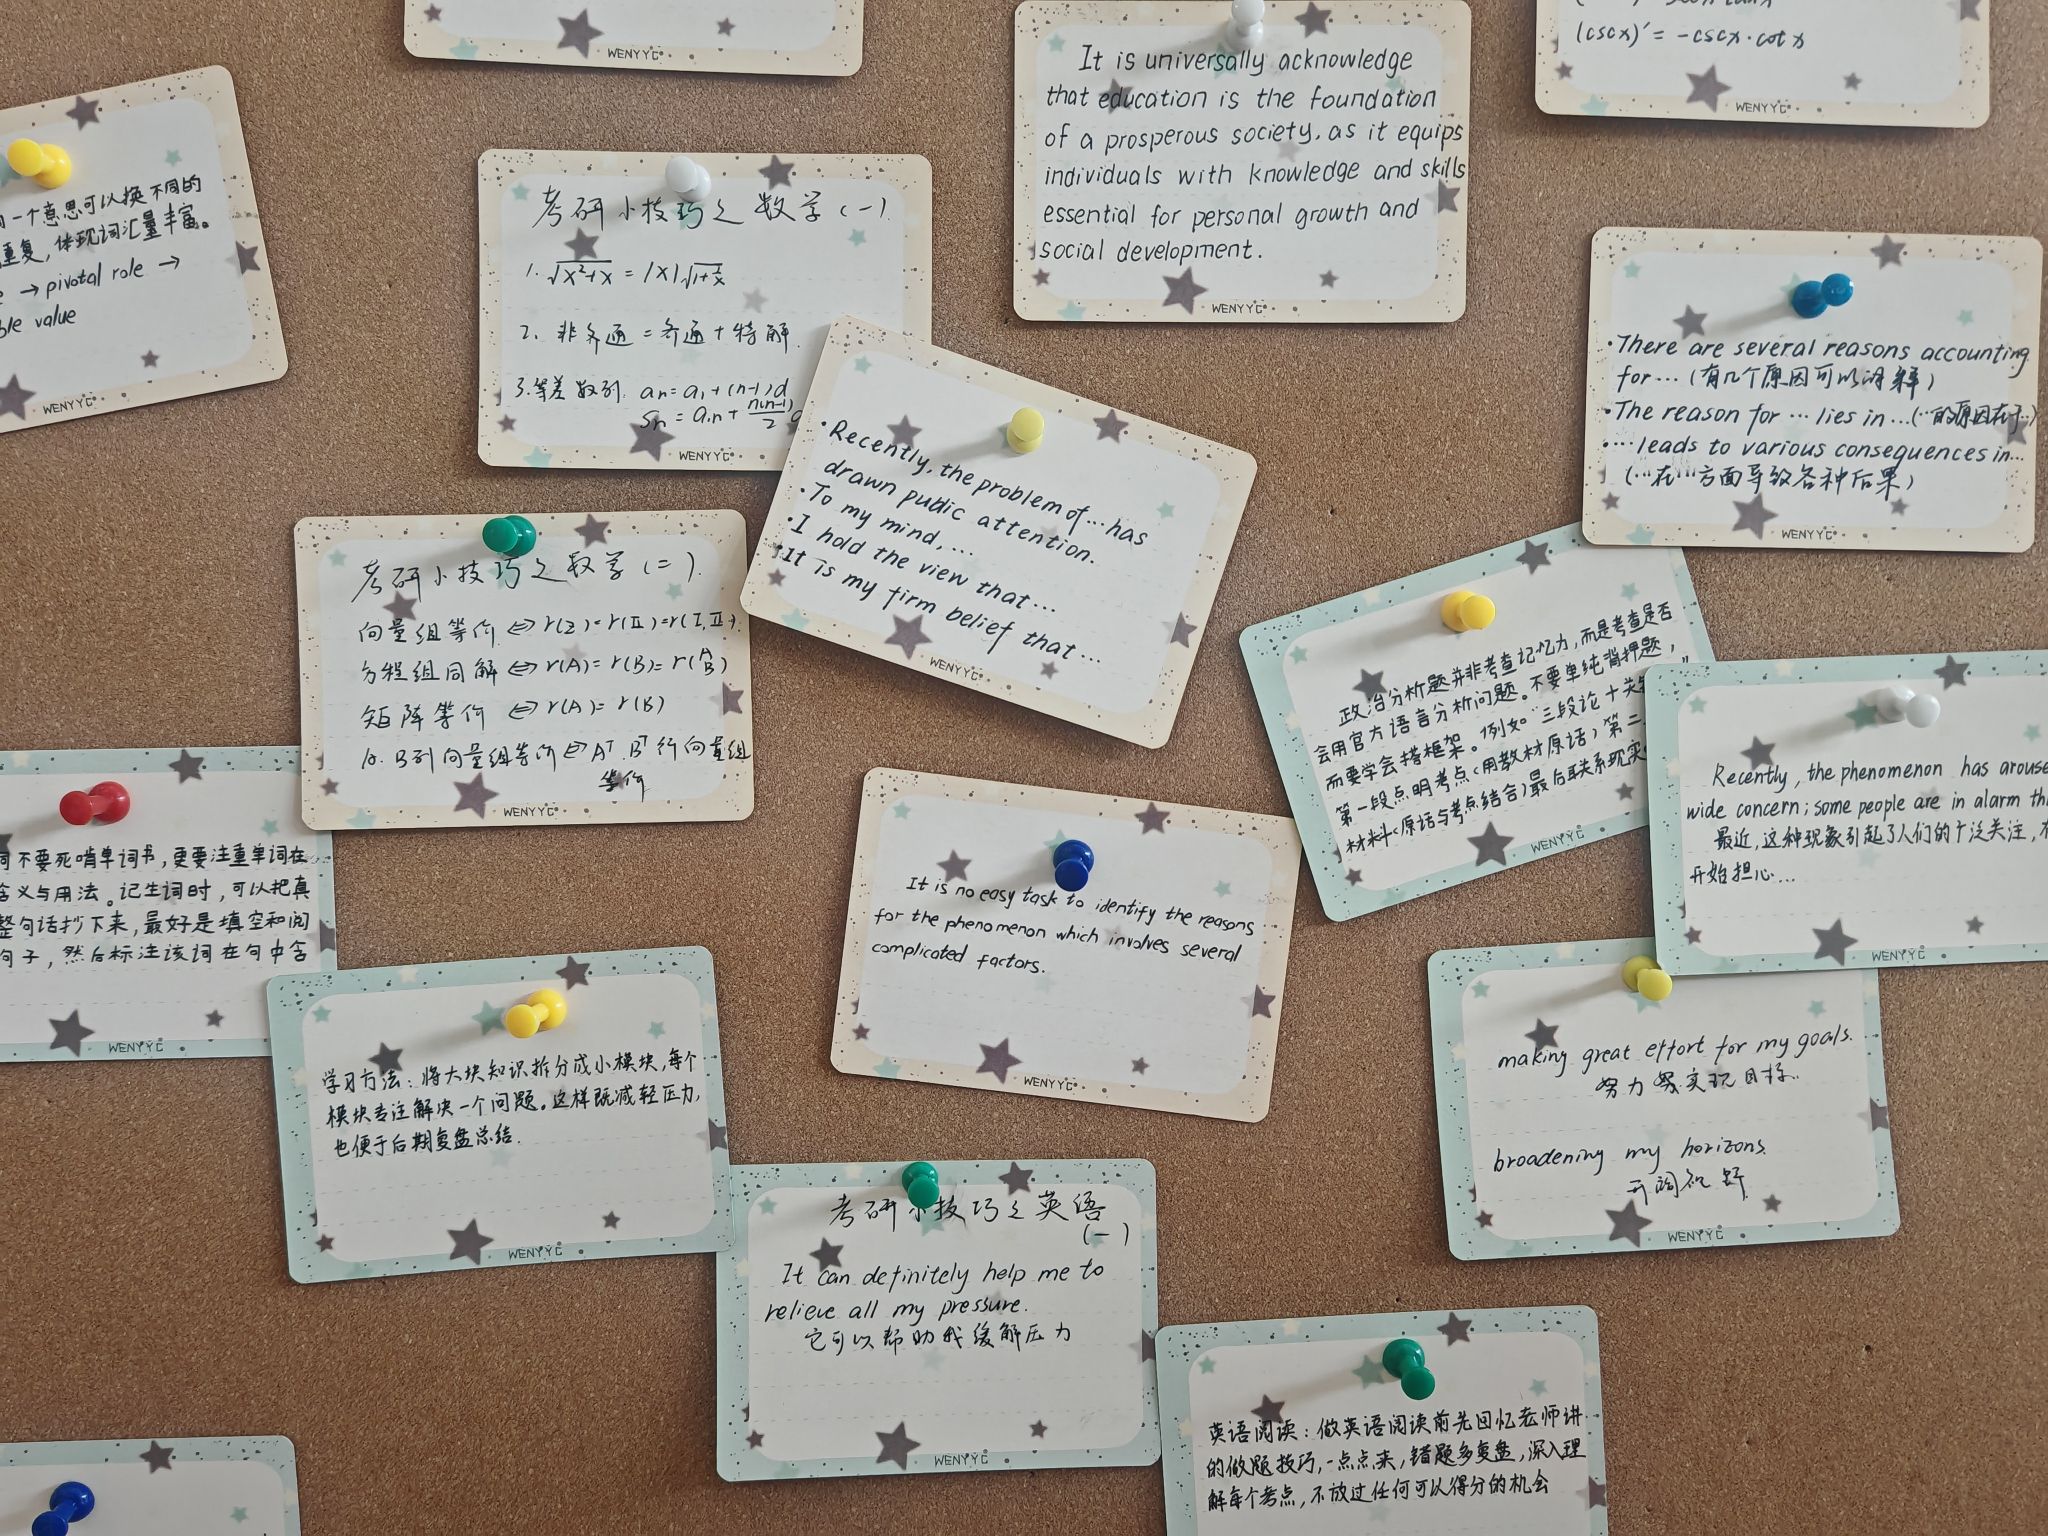 WENYYC
(cscx)′ = -cscx·cotx
WENYYC
It is universally acknowledge
that education is the foundation
of a prosperous society, as it equips
individuals with knowledge and skills
essential for personal growth and
social development.
WENYYC
一个意思可以换不同的
重复, 体现词汇量丰富。
→ pivotal role →
value
WENYYC
考研小技巧之数学(一).
1. √(x²+x) = |x|√(1+1/x)
2. 非齐通 = 齐通 + 特解.
3. 等差数列. an = a1 + (n-1)d
Sn = a1n + n(n-1)/2
WENYYC
·There are several reasons accounting
for…(有几个原因可以解释)
·The reason for … lies in …(…的原因在于…)
·…leads to various consequences in…
(…在…方面导致各种后果)
WENYYC
·Recently, the problem of … has
drawn public attention.
·To my mind, …
·I hold the view that…
·It is my firm belief that…
WENYYC
考研小技巧之数学(二).
向量组等价 ⇔ r(I)=r(II)=r(I,II).
方程组同解 ⇔ r(A)= r(B)= r(A B)
矩阵等价 ⇔ r(A)= r(B)
A. B列向量组等价 ⇔ Aᵀ. Bᵀ 行向量组
等价
WENYYC
政治分析题并非考查记忆力, 而是考查是否
会用官方语言分析问题。不要单纯背押题,
而要学会搭框架。例如"三段论+关
第一段点明考点(用教材原话)第二
材料(原话与考点结合)最后联系现实
WENYYC
Recently, the phenomenon has
wide concern; some people are in alarm
最近, 这种现象引起了人们的广泛关注,
开始担心…
WENYYC
词不要死啃单词书, 更要注重单词在
含义与用法。记生词时, 可以把真
整句话抄下来, 最好是填空和阅
句子, 然后标注该词在句中含
WENYYC
It is no easy task to identify the reasons
for the phenomenon which involves several
complicated factors.
WENYYC
学习方法: 将大块知识拆分成小模块, 每个
模块专注解决一个问题。这样既减轻压力,
也便于后期复盘总结.
WENYYC
making great effort for my goals.
努力实现目标.
broadening my horizons.
开阔视野
WENYYC
考研小技巧之英语
(一)
It can definitely help me to
relieve all my pressure.
它可以帮助我缓解压力
WENYYC
英语阅读: 做英语阅读前先回忆老师讲
的做题技巧, 一点点来, 错题多复盘, 深入理
解每个考点, 不放过任何可以得分的机会